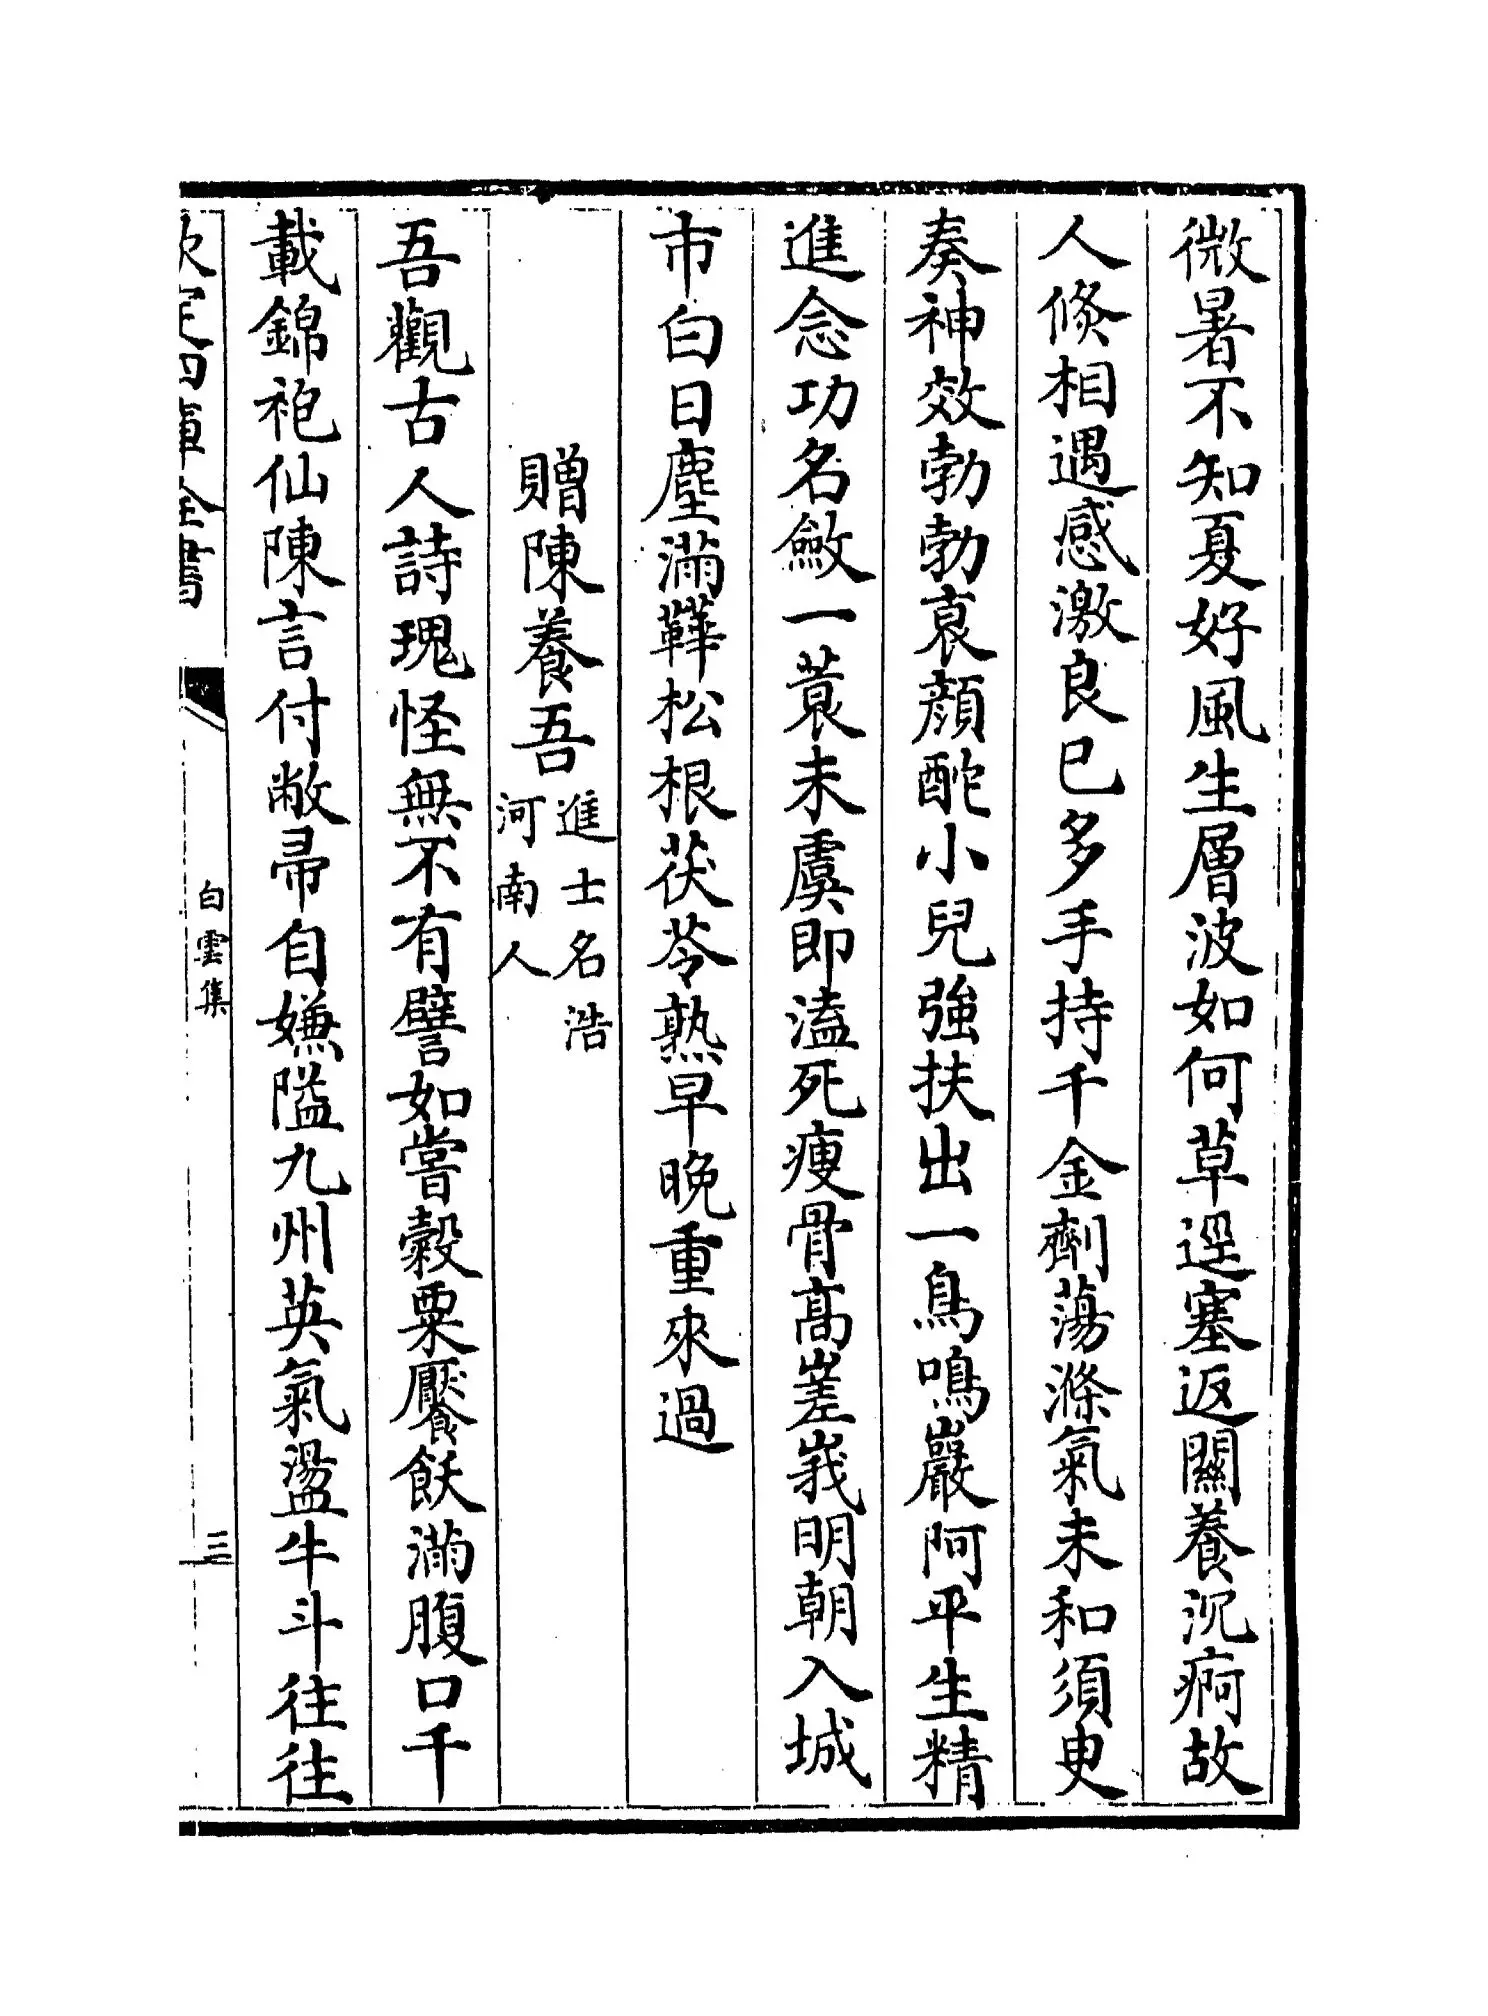 微暑不知夏好風生層波如何草逕塞返關養沉痾故
人倏相遇感激良已多手持千金劑蕩滌氣未和須臾
奏神效勃勃衰顔酡小兒強扶出一鳥鳴巖阿平生精
進念功名斂一蓑未虞即溘死瘦骨高嵳峩明朝入城
市白日塵滿鞾松根茯苓熟早晚重來過
贈陳養吾進士名浩
河南人
吾觀古人詩瑰怪無不有譬如嘗榖粟饜飫滿腹口千
載錦袍仙陳言付敝帚自嫌隘九州英氣盪牛斗往往
欽定四庫全書
白雲集
三